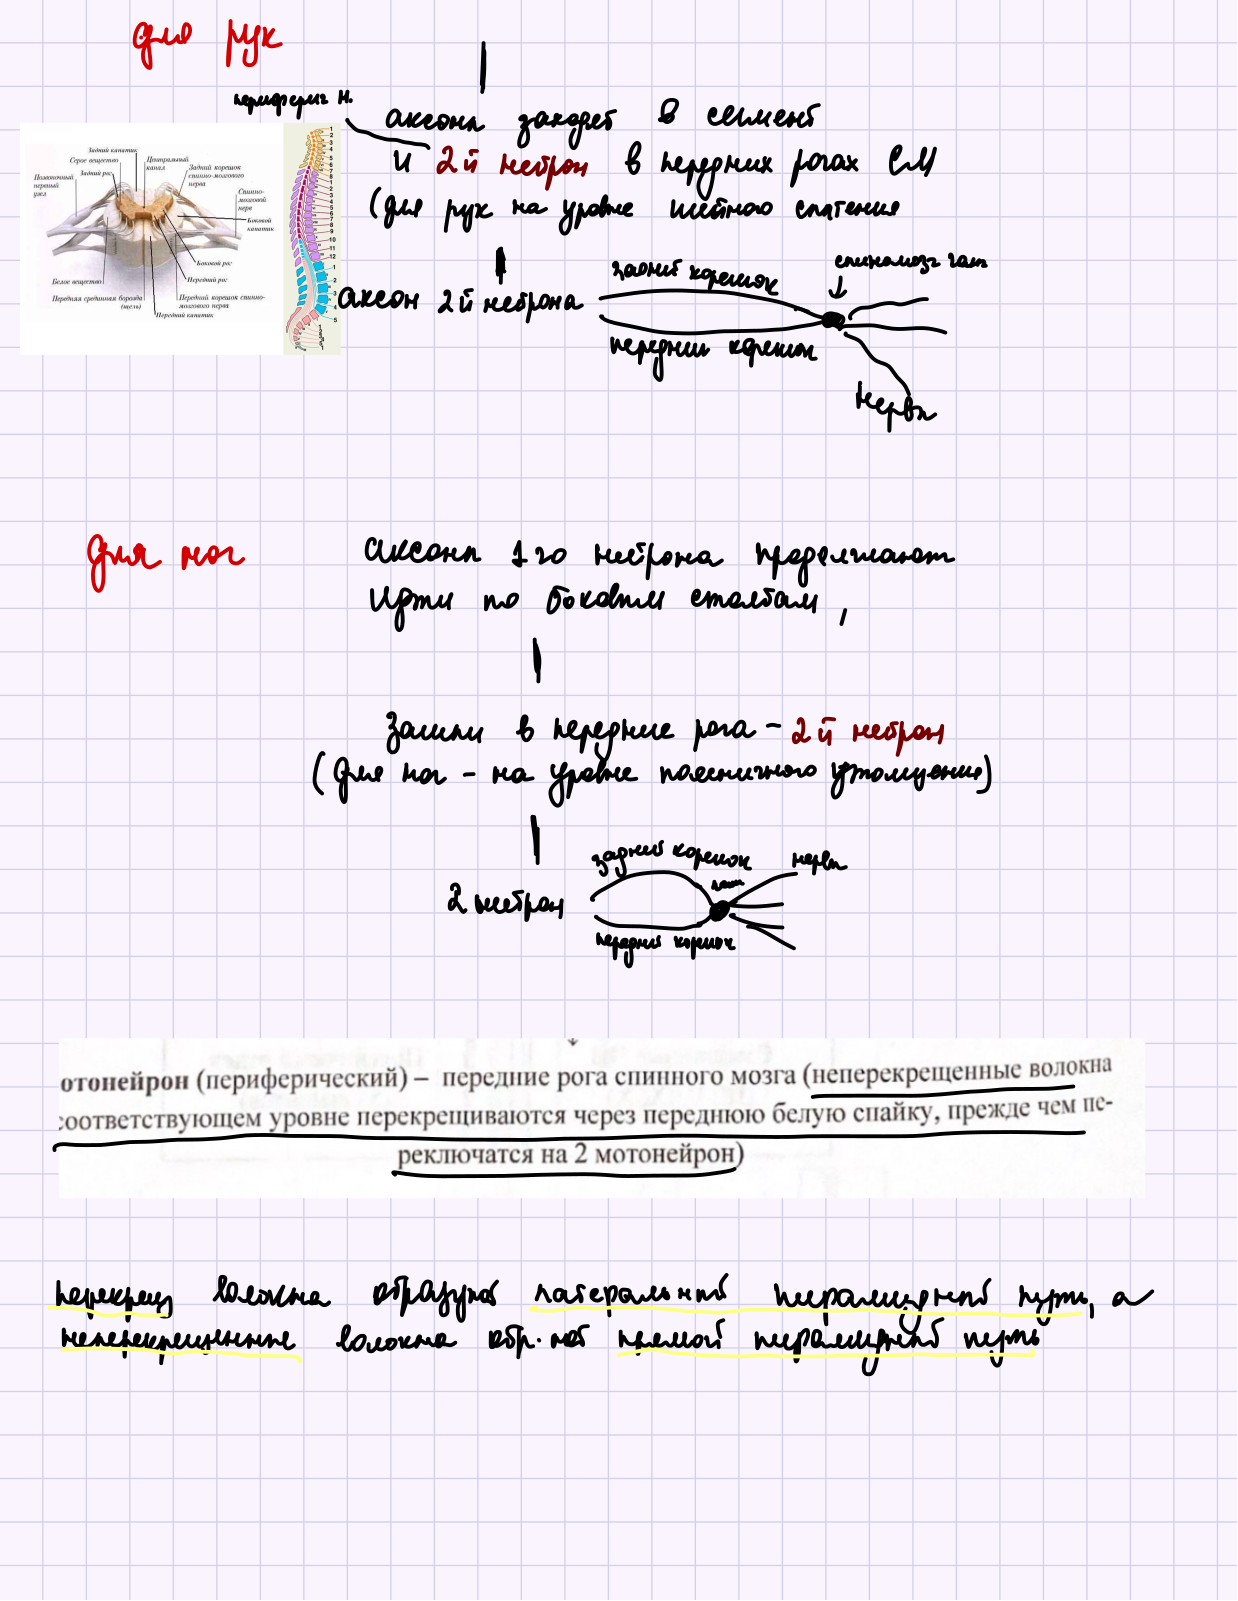 для рук
перифериг н.
аксоны заходят в сегмент
и 2й нейрон в передних рогах СМ
(для рук на уровне шейного
Задний канатик
Серое вещество
Центральный канал
Задний рог
Задний корешок спинно-мозгового нерва
Позвоночный нервный узел
Спинно-мозговой нерв
Боковой канатик
Боковой рог
Передний рог
Белое вещество
Передняя срединная борозда (щель)
Передний корешок спинно-мозгового нерва
Передний канатик
аксон 2й нейрона
задний корешок
передний корешок
спинномозг ган
нервы
для ног
аксоны 1го нейрона продолжают
идти по боковым столбам,
Зашли в передние рога – 2й нейрон
(для ног – на уровне поясничного утолщения)
2 нейрон
задний корешок
нервы
передний корешок
отонейрон (периферический) – передние рога спинного мозга (неперекрещенные волокна
соответствующем уровне перекрещиваются через переднюю белую спайку, прежде чем пе-
реключатся на 2 мотонейрон)
перекрещ волокна образуют латеральный пирамидный путь, а
неперекрещенные волокна обр. ют прямой пирамидный путь